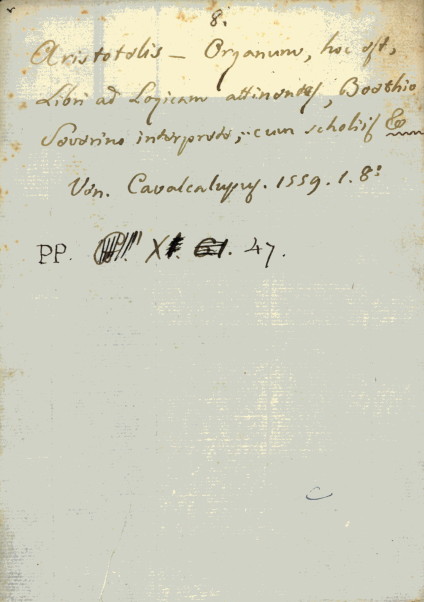 8.
Aristotelis – Organum, hoc est,
Libri ad Logicam attinentes, Boethio
Severino interprete, cum scholiis &
Ven. Cavalcalupus. 1559. 1. 8º
PP. X 47.